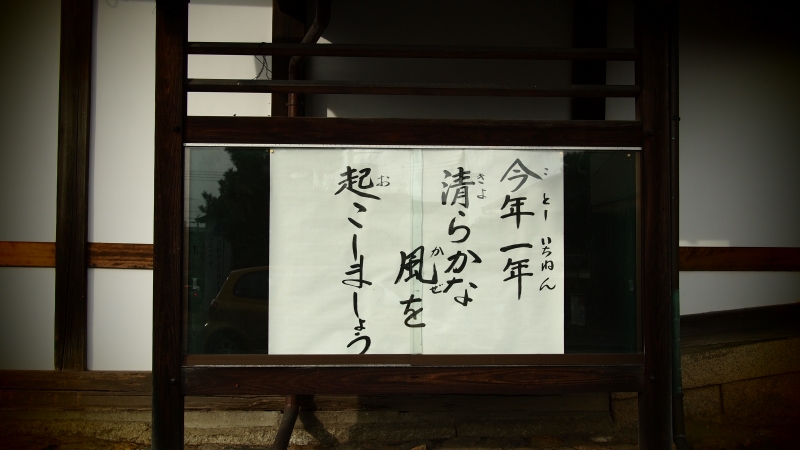 今年一年
ことし いちねん
清らかな
きよ
風を
かぜ
起こしましょう
お